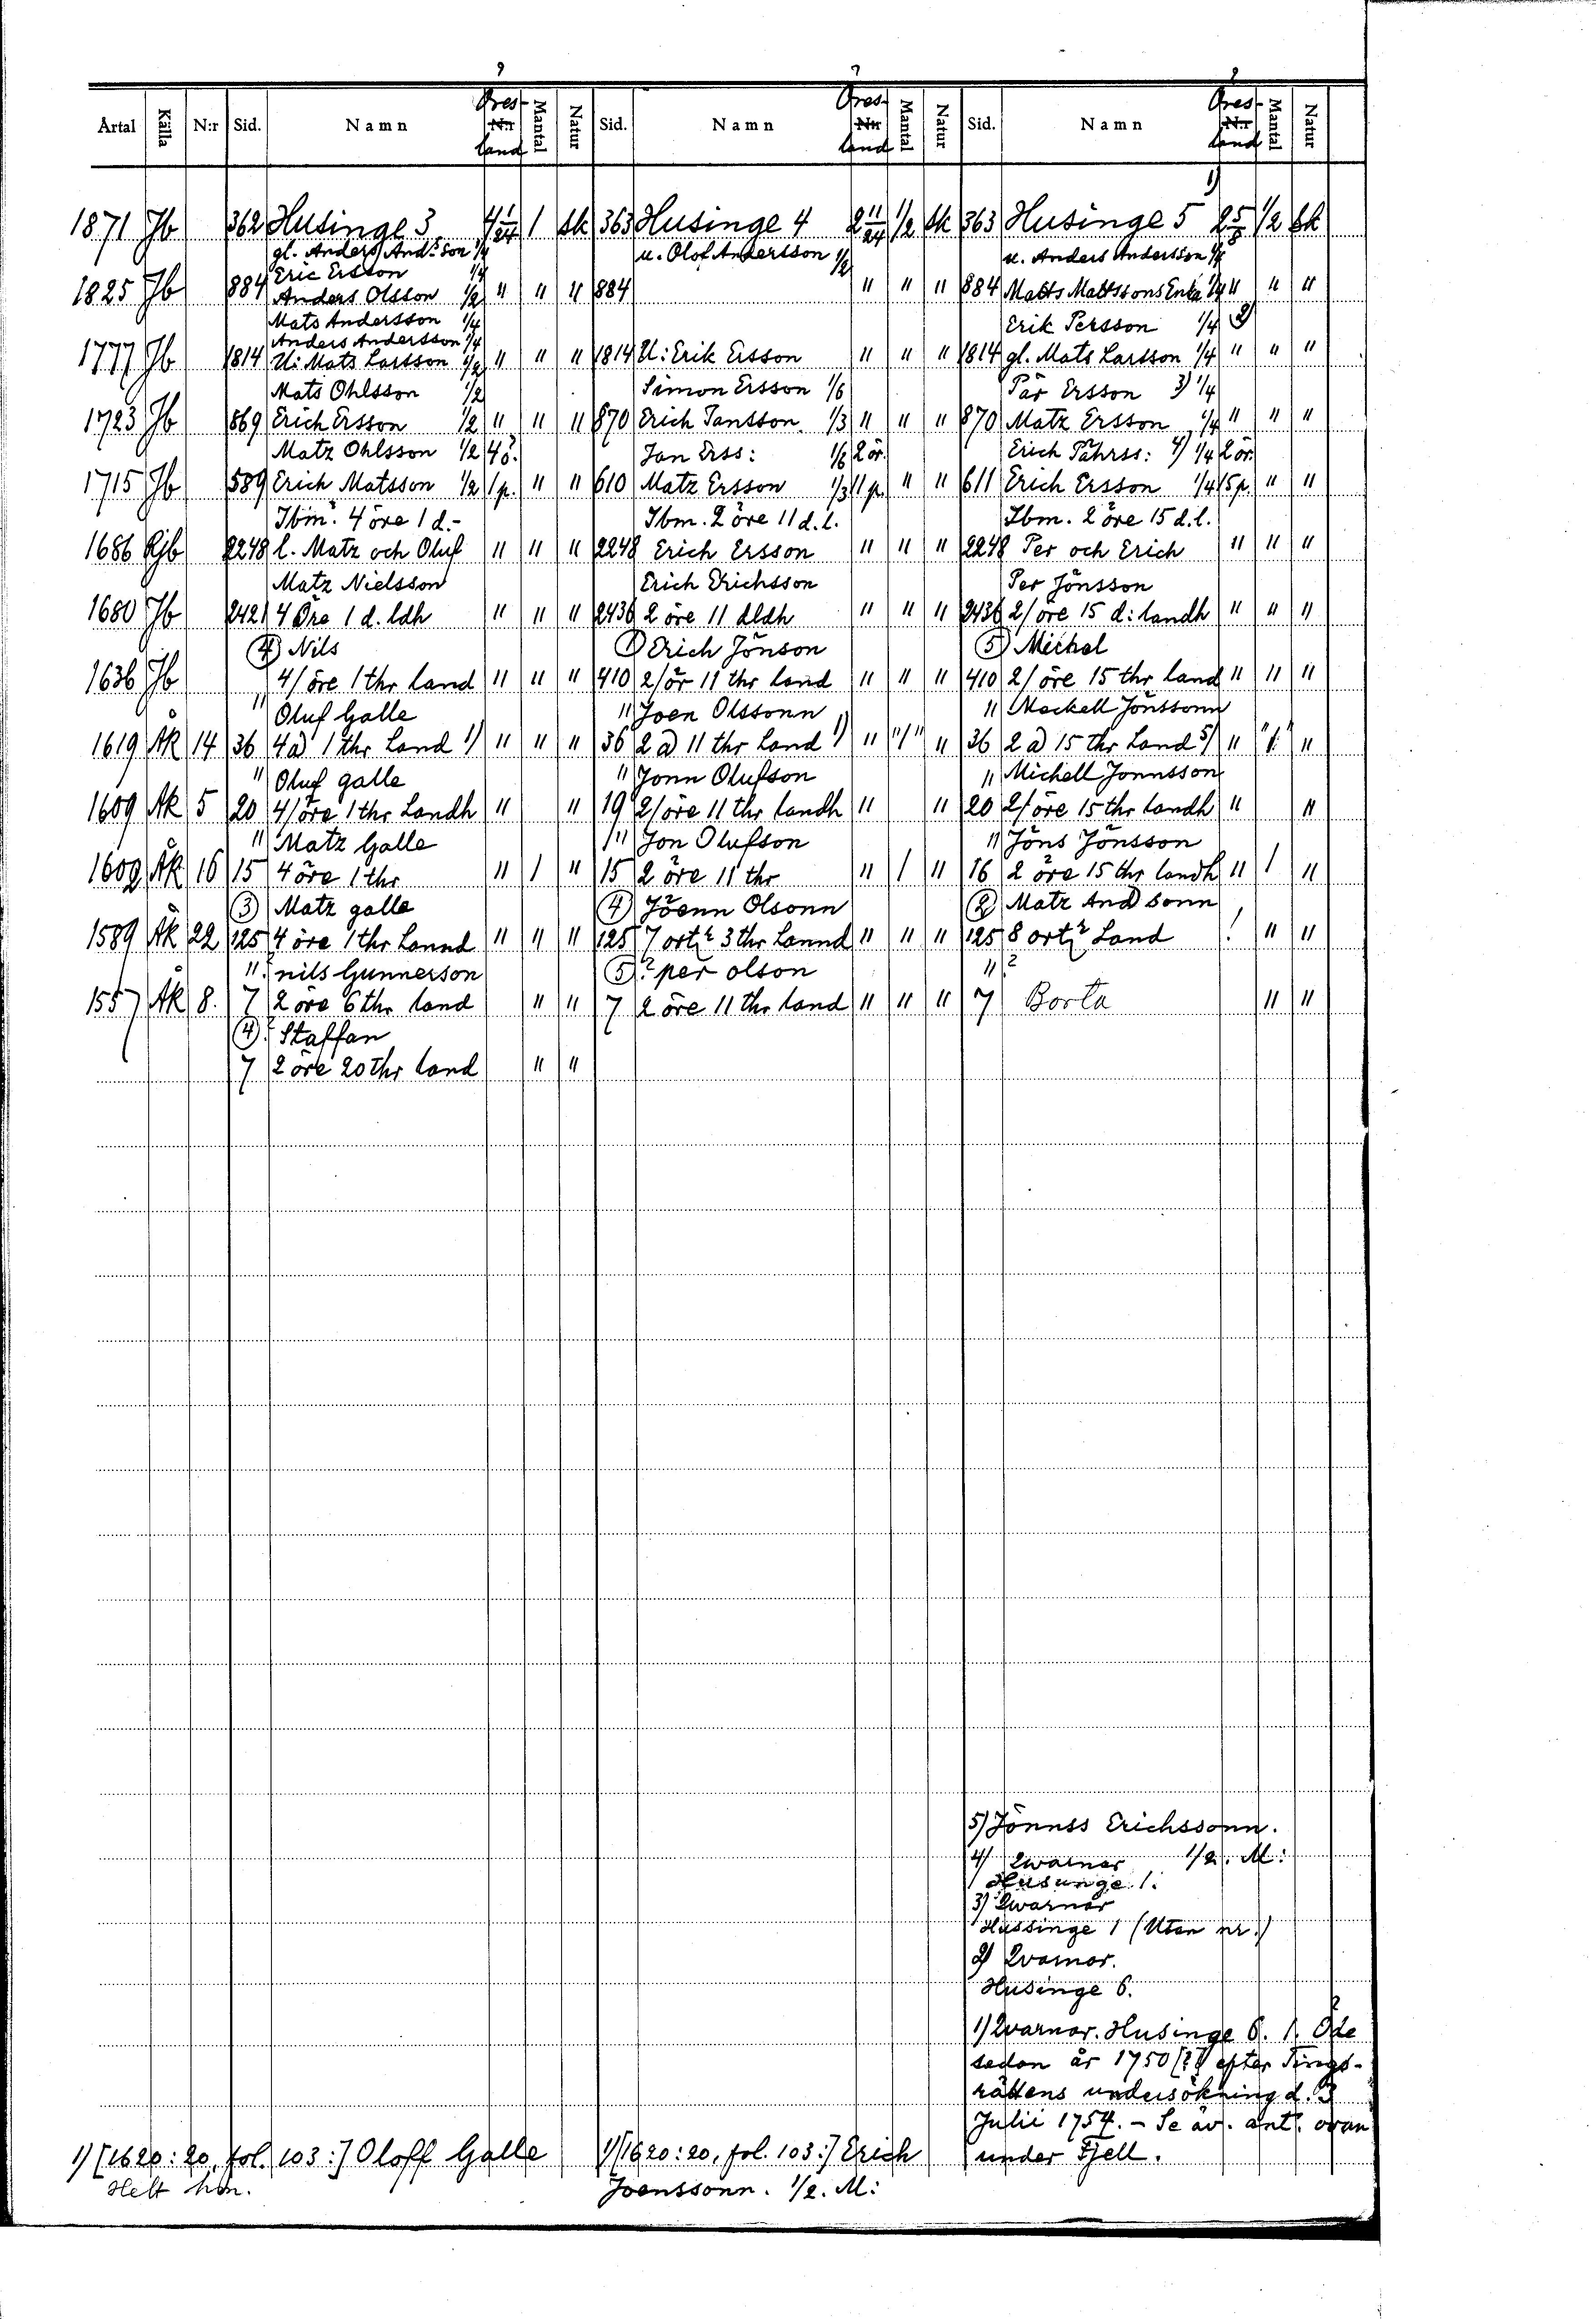 Årtal Källa N:r Sid. Namn Öres- N:r land Mantal Natur Sid. Namn Öres- N:r land Mantal Natur Sid. Namn Öres- N:r land Mantal Natur
1871 Jb 362 Husinge 3 4 1/24 1 sk 363 Husinge 4 2 11/24 1/2 sk 363 Husinge 5 1) 2 5/8 1/2 sk
gl. Anders And:son 1/4 u. Olof Andersson 1/2 u. Anders Andersson 1/4
Eric Ersson 1/4
1825 Jb 884 Anders Olsson 1/2 " " " 884 " " " 884 Matts Mattssons Enka 1/4 " " "
Mats Andersson 1/4 Erik Persson 1/4 2)
Anders Andersson 1/4
1777 Jb 1814 U: Mats Larsson 1/2 " " " 1814 U: Erik Ersson " " " 1814 gl. Mats Larsson 1/4 " " "
Mats Ohlsson 1/2 Simon Ersson 1/6 Pär Ersson 3) 1/4
1723 Jb 869 Erich Ersson 1/2 " " " 870 Erich Jansson 1/3 " " " 870 Matz Ersson 1/4 " " "
Matz Ohlsson 1/2 4ö. Jan Erss: 1/6 2 ör. Erich Pährss: 4) 1/4 2 ör.
1715 Jb 589 Erich Matsson 1/2 1p. " " 610 Matz Ersson 1/3 11p. " " 611 Erich Ersson 1/4 15p. " "
Ibm. 4 öre 1 d.- Ibm. 2 öre 11 d.l. Ibm. 2 öre 15 d.l.
1686 Rjb 2248 l. Matz och Oluf " " " 2248 Erich Ersson " " " 2248 Per och Erich " " "
Matz Nielsson Erich Erichsson Per Jönsson
1680 Jb 2421 4 Öre 1 d. ldh " " " 2436 2 öre 11 dldh " " " 2436 2/öre 15 d: landh " " "
4) Nils 1) Erich Jönson 5) Michel
1636 Jb 4/öre 1 thr land " " " 410 2/ör 11 thr land " " " 410 2/öre 15 thr land " " "
" Oluf Galle " Joen Olssonn " Mackell Jönssonn
1619 Åk 14 36 4 a 1 thr Land 1) " " " 36 2 a 11 thr Land 1) " "/" " 36 2 a 15 thr Land 5) " "/" "
" Oluf galle " Jonn Olufson " Michell Jonnsson
1609 Åk 5 20 4/öre 1 thr Landh " " 19 2/öre 11 thr landh " " 20 2/öre 15 thr landh " "
" Matz Galle " Jon Olufson " Jöns Jönsson
1602 Åk 16 15 4 öre 1 thr " 1 " 15 2 öre 11 thr " 1 " 16 2 öre 15 thr landh " 1 "
3) Matz galle 4) Jöenn Olsonn 2) Matz And sonn
1589 Åk 22 125 4 öre 1 thr Lannd " " " 125 7 ort 3 thr Lannd " " " 125 8 ort Land ! " "
" nils Gunnerson 5)? per olson "?
1557 Åk 8. 7 2 öre 6 thr land " " 7 2 öre 11 thr land " " " 7 Borta " "
4)? Staffan
7 2 öre 20 thr land " "
5) Jönnss Erichssonn.
4) Qwarnar 1/2. M:
Husunge 1.
3) Qwarnar
Hussinge 1 (Utan nr.)
2) Qvarnar.
Husinge 6.
1) Qvarnar. Husinge 6. 1. Öde
sedan år 1750 [?] efter Tings-
rättens undersökning d. 3
Julii 1754. - Se äv. ant. ovan
under Fjell.
1) [1620: 20, fol. 103:] Oloff Galle
Helt hm.
1) [1620: 20, fol. 103:] Erich
Joenssonn. 1/2. M: